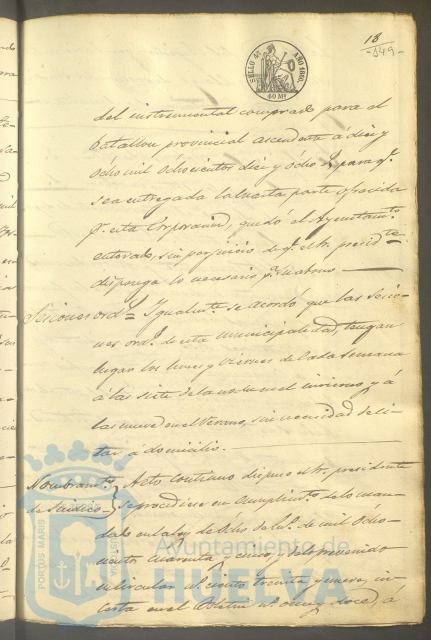 18
-349-
SELLO 4º AÑO 1860.
40 Ms
del instrumental comprado para el
batallon provincial ascendente á diez y
Ocho mil Ochocientos diez y Ocho para q.
sea entregada la cuarta parte ofrecida
p. esta Corporacion, quedó el Ayuntam.to
enterado, sin perjuicio de q. el Sr. presid.te
disponga lo necesario p.
Sesiones ord.s Igualm.te se acordó que las Sesio-
nes ord.s de esta municipalidad, tengan
lugar los lunes y Viernes de Cada Semana
á las siete de la noche en el invierno y á
las nueve en el Verano, sin necesidad de ci-
tar á domicilio.
Nombram.to Acto continuo dispuso el Sr. presidente
de Sindico se procediese en Cumplim.to de lo man-
dado en la ley de Ocho de En.o de mil Ocho-
cientos Cuarenta y cinco, y de lo prevenido
en circular n.o ciento treinta y nueve, in-
serta en el Boletin n.o once y doce, á
PORTUS MARIS
Ayuntamiento de
HUELVA